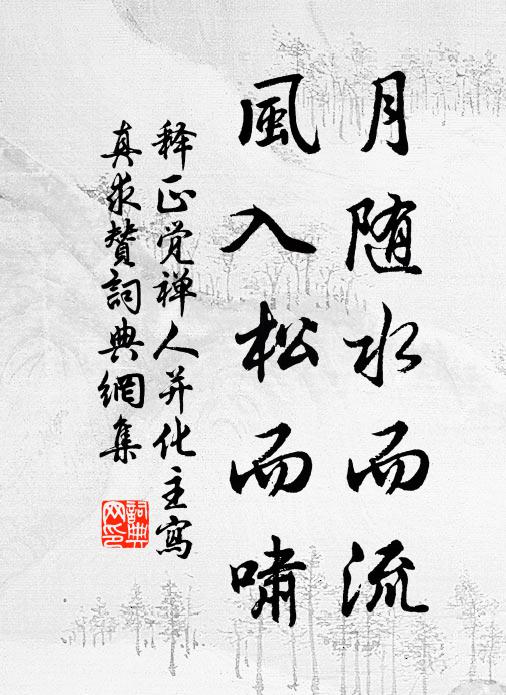 月随水而流
風入松而嘯
释正觉禅人并化主寫
真求贊詞典網集
詞典
网印